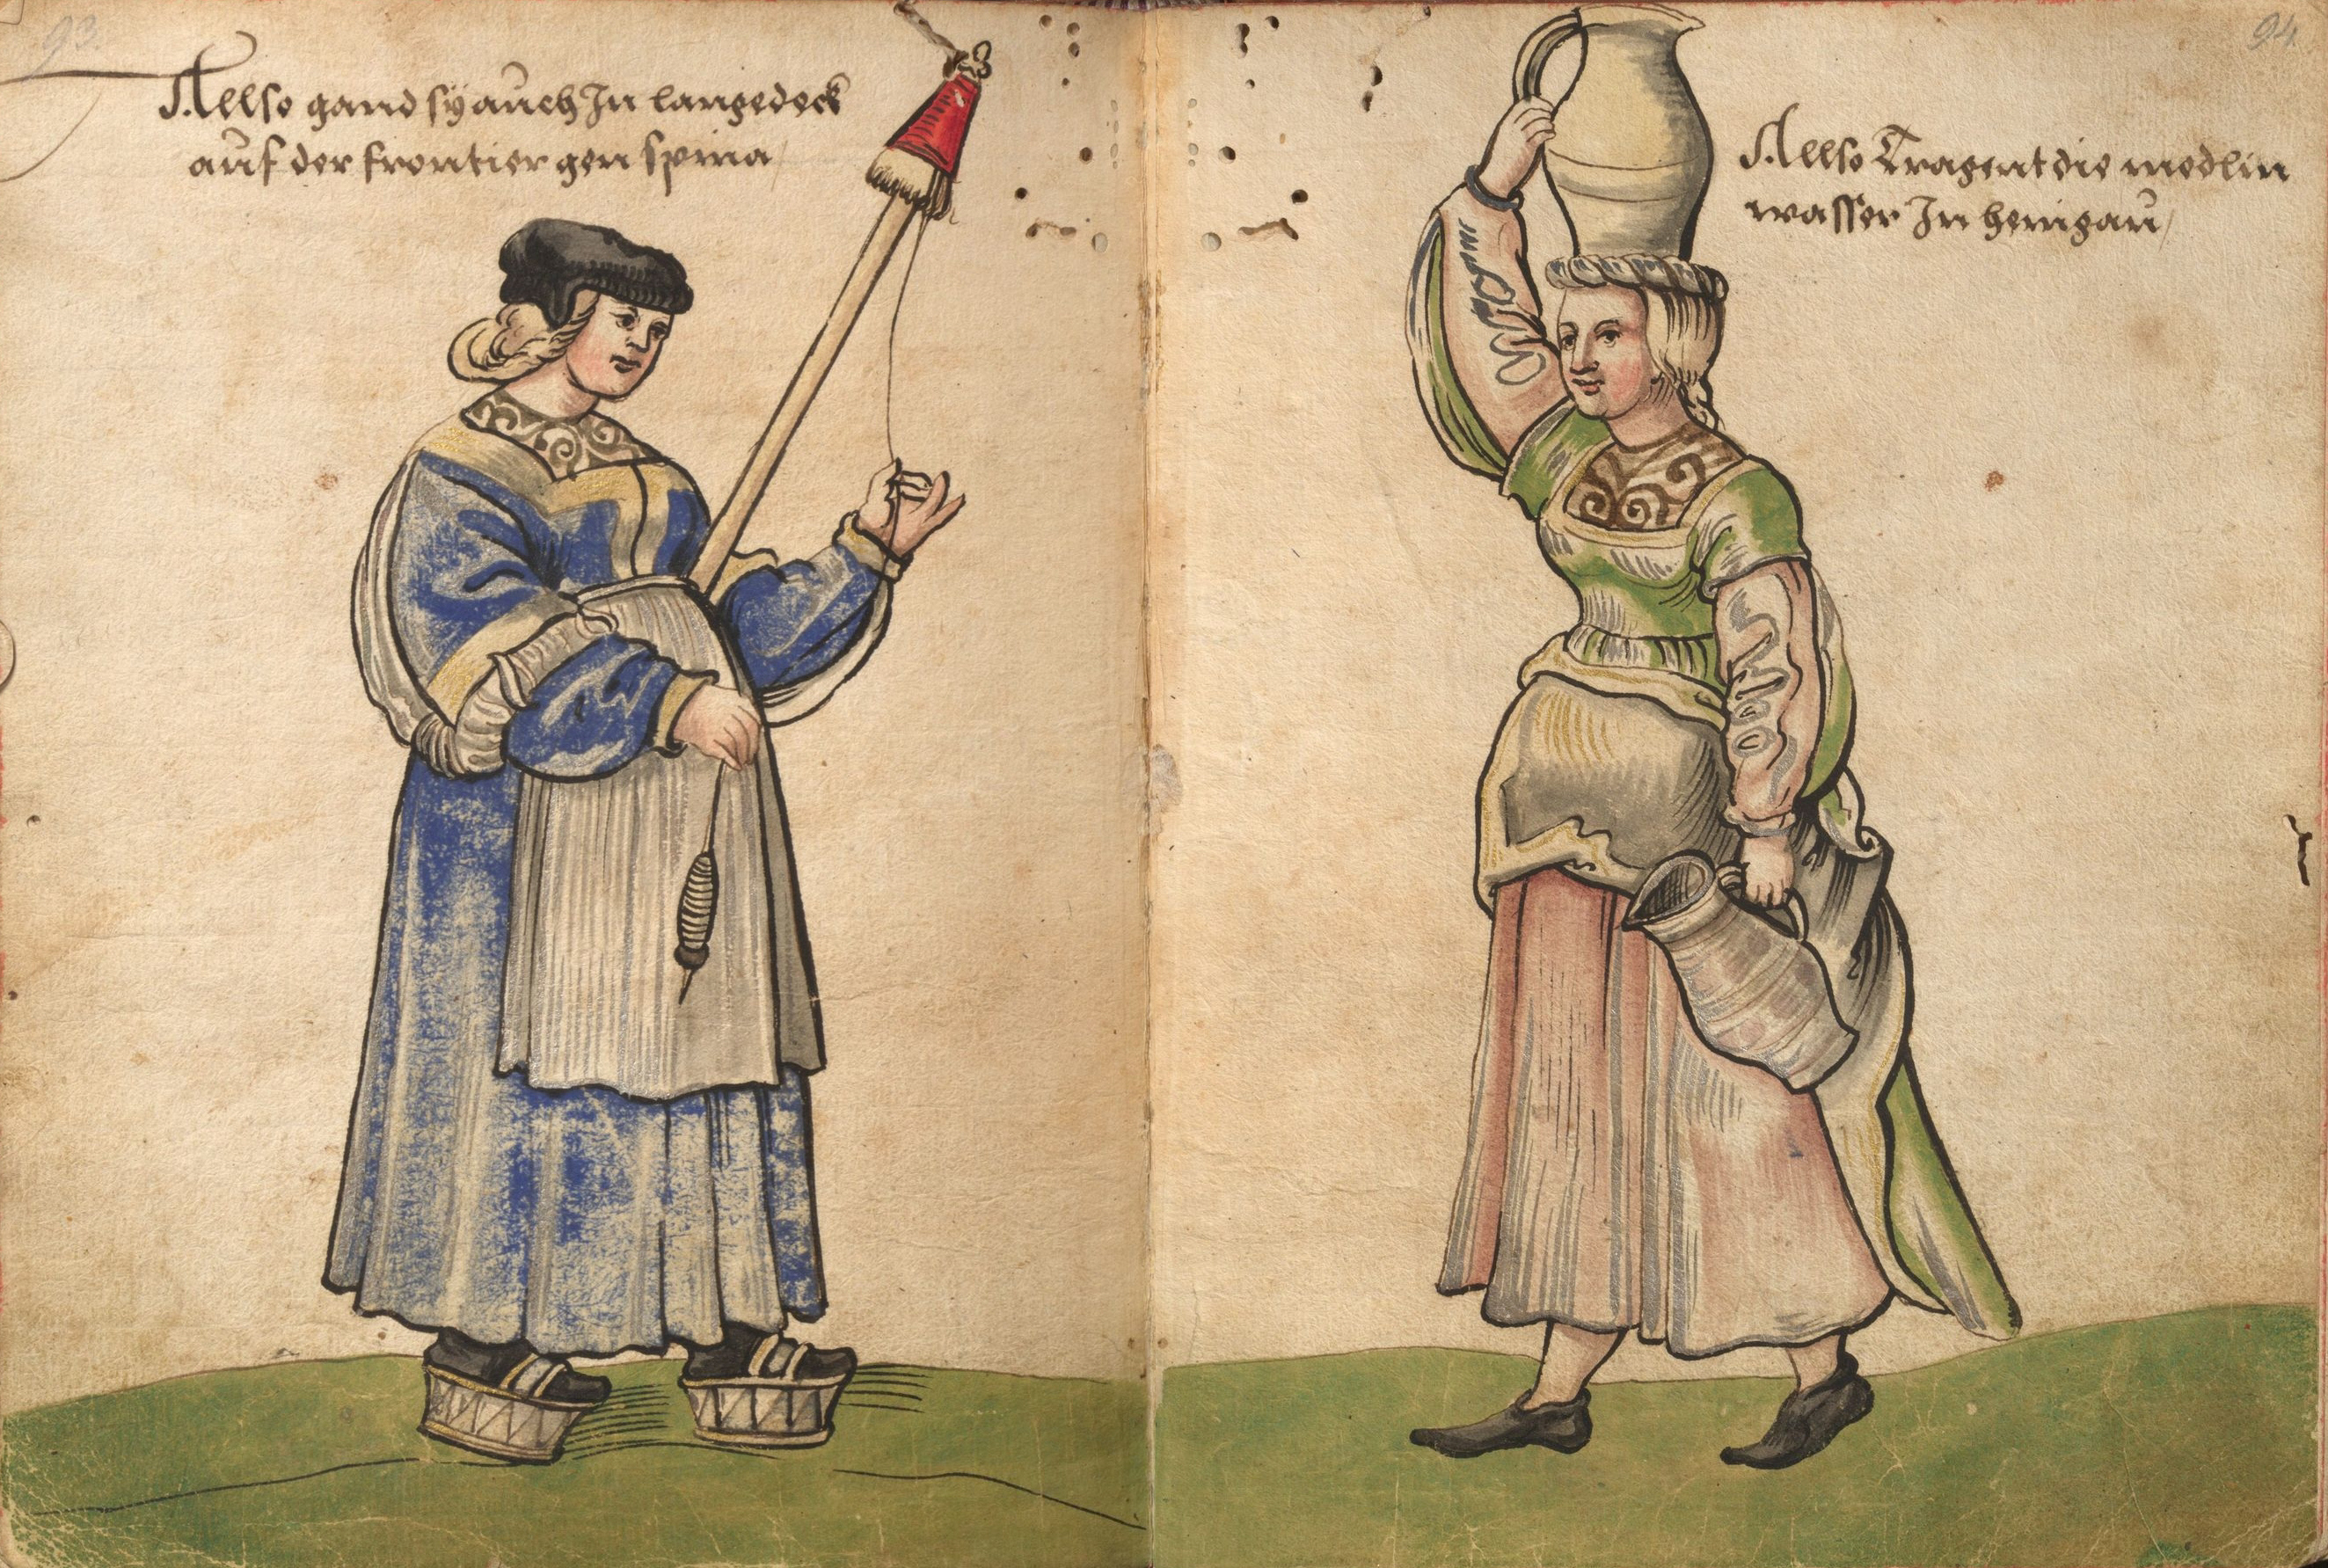 93.
Allso gand sy auch In langedeck
auf der frontier gen spina /
94.
Allso Tragent die medlin
wasser In henigau /